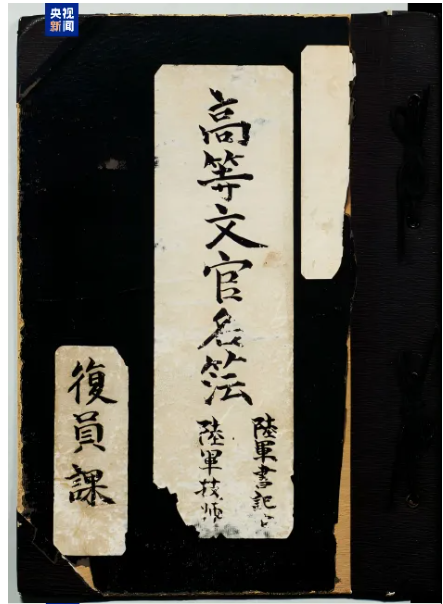 央视
新闻
高等文官名
陸軍書記
陸軍技師
復員課